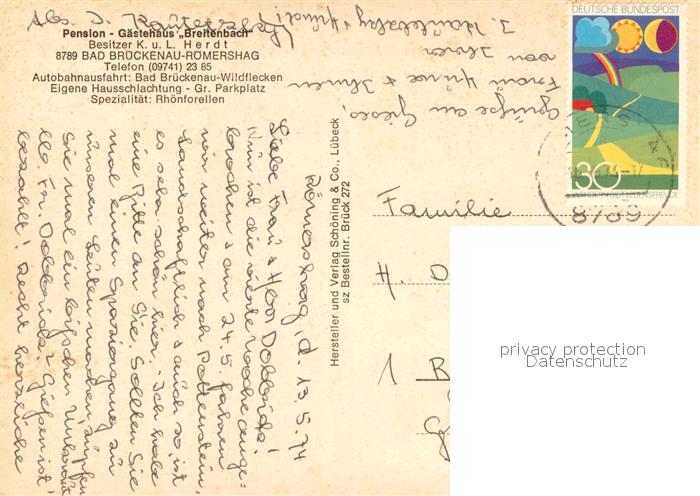 Pension - Gästehaus "Breitenbach"
Besitzer K. u. L. Herdt
8789 BAD BRÜCKENAU-RÖMERSHAG
Telefon (09741) 23 85
Autobahnausfahrt: Bad Brückenau-Wildflecken
Eigene Hausschlachtung - Gr. Parkplatz
Spezialität: Rhönforellen
Römershag, d. 13.5.74
Liebe Frau & Herr
Nun ist die vierte Woche ange-
brochen & am 24.5. fahren
wir weiter nach Pottenstein,
Landschaftlich & auch so, ist
es sehr schön hier. - Ich habe
eine Bitte an Sie. Sollten Sie
mal einen Spaziergang zu
unseren Leuten machen, zupfen
Sie mal ein bißchen Unkraut
Gießen ist
bezahlt! Recht herzliche
Grüße an
Frau & Ihnen
von Ihrer
Hersteller und Verlag Schöning & Co., Lübeck
sz Bestellnr. Brück 272
DEUTSCHE BUNDESPOST
30
WANDERN GIBT LEBENSFREUDE
8789
Familie
H. D
1 B
G
privacy protection
Datenschutz